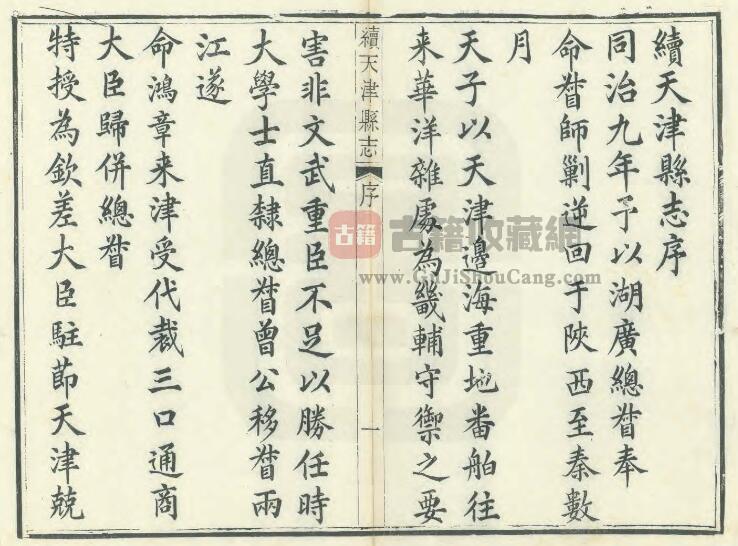 續天津縣志序
同治九年予以湖廣總督奉
命督師剿逆回于陝西至秦數
月
天子以天津邊海重地番舶往
来華洋雜處為畿輔守禦之要
續天津縣志 序 一
害非文武重臣不足以勝任時
大學士直隸總督曾公移督兩
江遂
命鴻章来津受代裁三口通商
大臣歸併總督
特授為欽差大臣駐節天津兢
古籍 古籍收藏網
www.GuJiShouCang.com